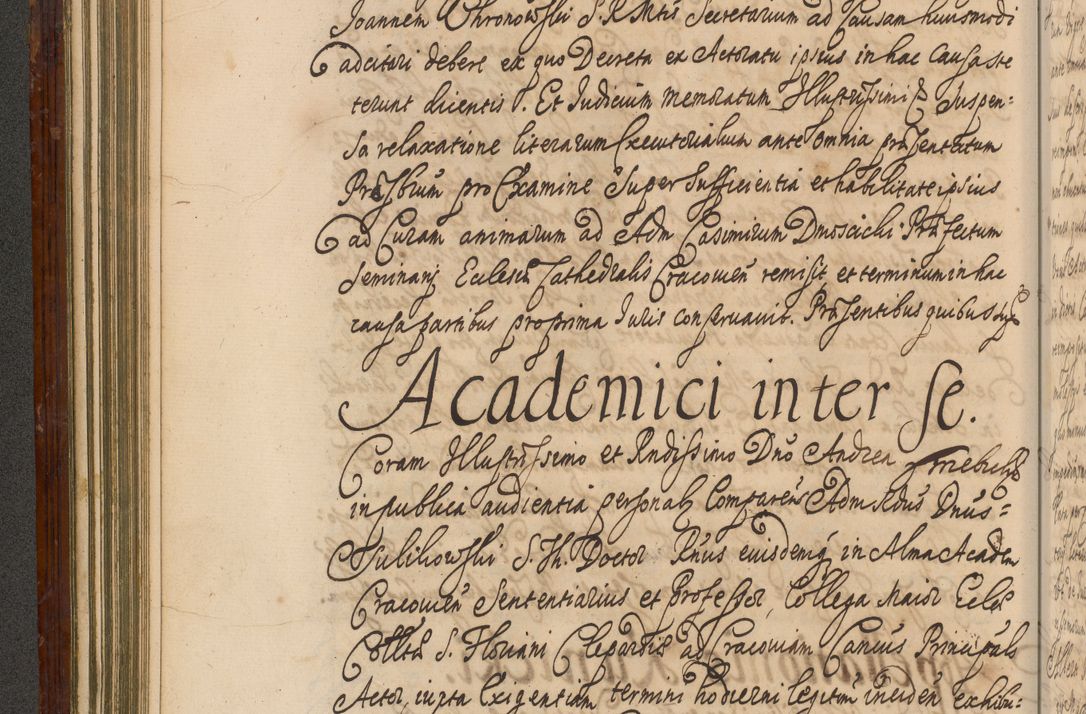 Joannem Chronowski S. R. Mtis Secretarium ad Causam huiusmodi
adcitari debere ex quo Decreta ex Actoratu ipsius in hac Causa ste
terunt dicentis. Et Judicium memoratum Illustrissimi Suspen=
sa relaxatione literarum Executorialium ante omnia præsentatum
Præsbrum pro Examine super sufficientia et habilitate ipsius
ad Curam animarum ad Adm Casimirum Dmoscicki Præfectum
Seminarij Ecclesiæ Cathedralis Cracovien̄ remisit et terminum in hac
causa partibus pro prima Juris conservavit. Præsentibus quibus supra
Academici inter se.
Coram Illustrissimo et Rndissimo Dnō Andrea Trzebicki
in publica audientia personalr Comparens Adm Rdus Dnūs=
Sulikowski S. Th. Doctor Eiusdemq in Alma Academ
Cracovien̄ Sententiarius et Professor, Collega Maior Eccles
Colltæ S. Floriani Clepardiæ ad Cracoviam Cancus Principals
Actor, iuxta Exigentiam termini hodierni legitm̄ inciden̄ exhibu=